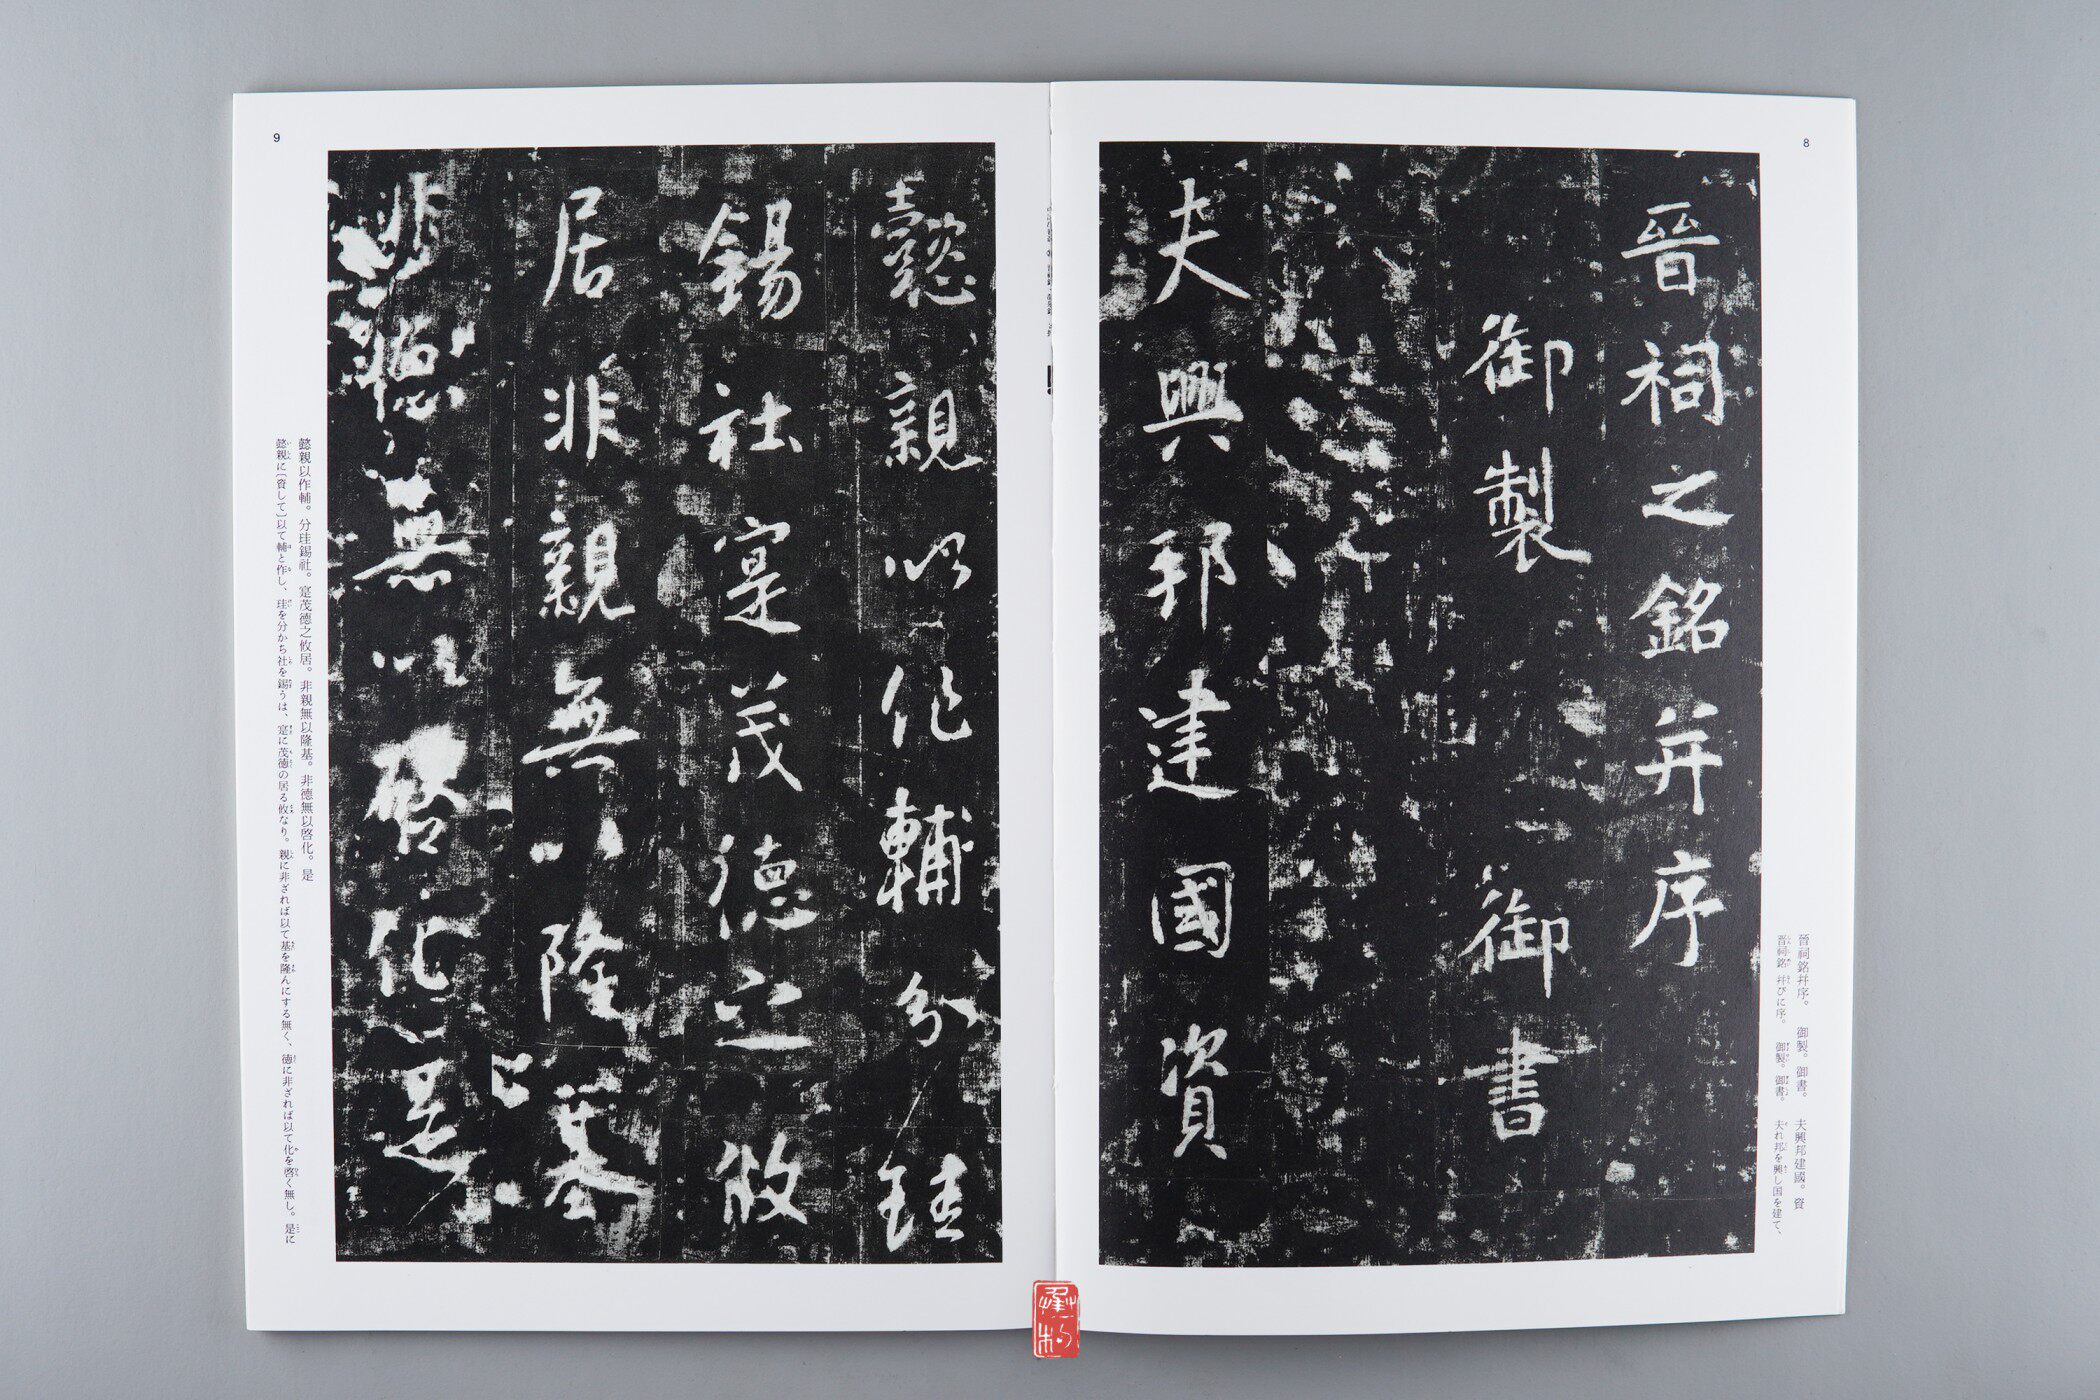 8
晉祠之銘并序
御製 御書
夫興邦建國資
晉祠銘幷序。 御製。御書。 夫興邦建國。資
晋祠銘 幷びに序。 御製。御書。 夫れ邦を興し国を建て、
9
懿親以作輔分珪
錫社寔茂德之攸
居非親無以隆基
非德無以啓化是
懿親以作輔。分珪錫社。寔茂德之攸居。非親無以隆基。非德無以啓化。是
懿親に〔資して〕以て輔と作し、珪を分かち社を錫うは、寔に茂徳の居る攸なり。親に非ざれば以て基を隆んにする無く、徳に非ざれば以て化を啓く無し。是に